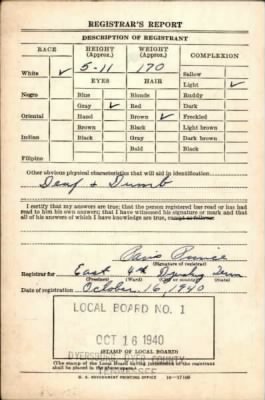 REGISTRAR'S REPORT
DESCRIPTION OF REGISTRANT
RACE HEIGHT (Approx.) WEIGHT (Approx.) COMPLEXION
5-11 170 Sallow
White ✓ EYES HAIR Light ✓
Negro Blue Blonde Ruddy
Gray ✓ Red Dark
Oriental Hazel Brown ✓ Freckled
Brown Black Light brown
Indian Black Gray Dark brown
Bald Black
Filipino
Other obvious physical characteristics that will aid in identification
Deaf & Dumb
I certify that my answers are true; that the person registered has read or has had
read to him his own answers; that I have witnessed his signature or mark and that
all of his answers of which I have knowledge are true, except as follows:
(Signature of registrar)
Registrar for East 4th Tenn
(Precinct) (Ward) (City or county) (State)
Date of registration October 16, 1940
LOCAL BOARD NO. 1
OCT 16 1940
DYERSBURG, DYER COUNTY
TENNESSEE
(STAMP OF LOCAL BOARD)
(The stamp of the Local Board having jurisdiction of the registrant
shall be placed in the above space.)
U. S. GOVERNMENT PRINTING OFFICE